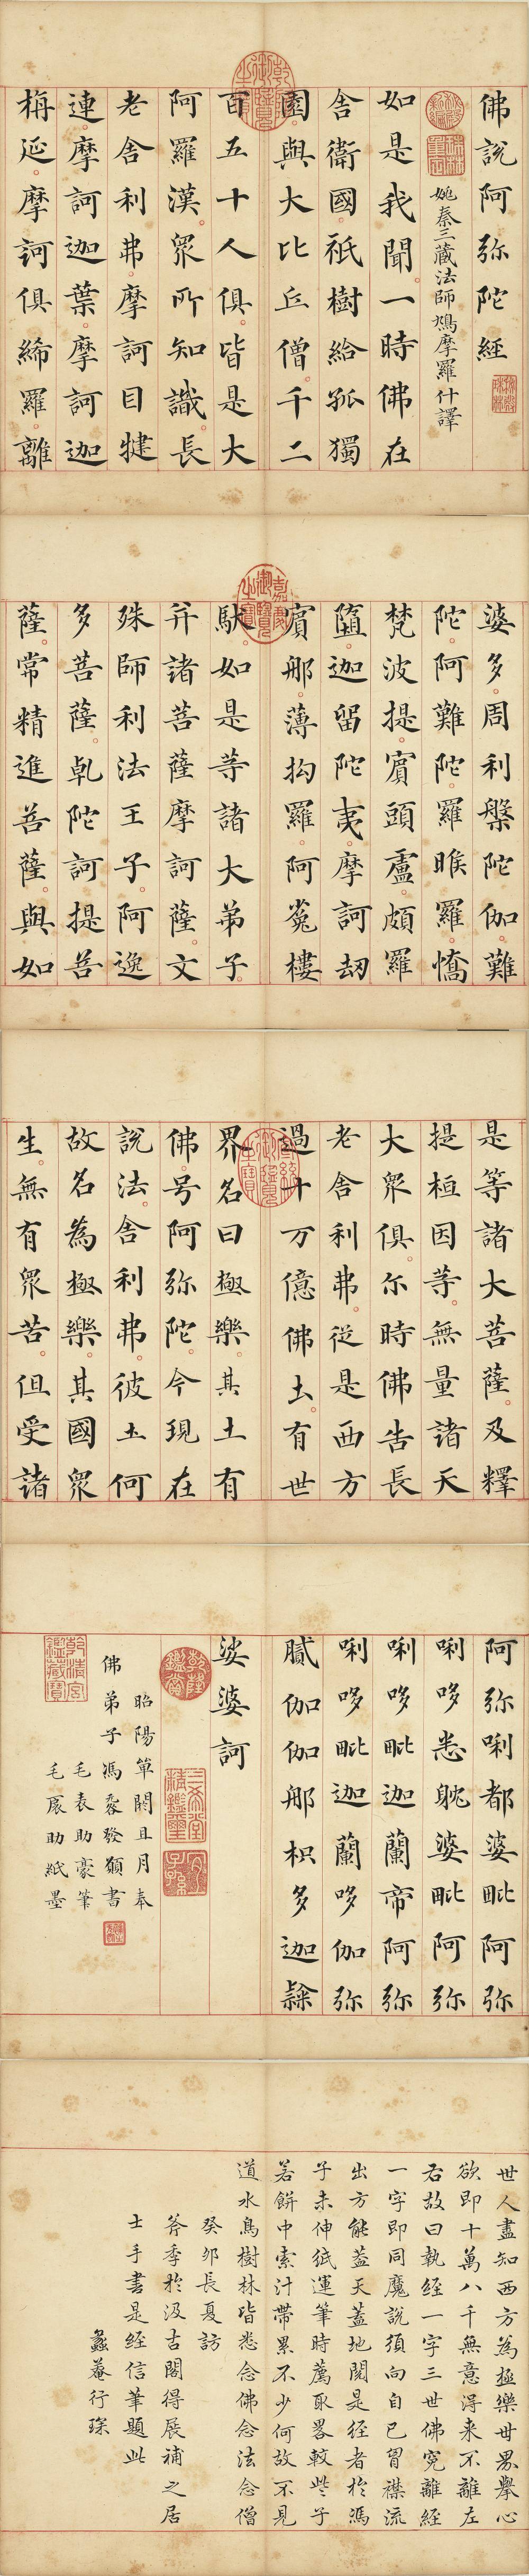 佛說阿弥陀經
姚秦三藏法師鳩摩羅什譯
如是我聞一時佛在
舍衛國祇樹給孤獨
園與大比丘僧千二
百五十人俱皆是大
阿羅漢眾所知識長
老舍利弗摩訶目揵
連摩訶迦葉摩訶迦
栴延摩訶俱絺羅離
婆多周利槃陀伽難
陀阿難陀羅睺羅憍
梵波提賓頭盧頗羅
墮迦留陀夷摩訶劫
賓那薄拘羅阿㝹樓
馱如是等諸大弟子
并諸菩薩摩訶薩文
殊師利法王子阿逸
多菩薩乹陀訶提菩
薩常精進菩薩與如
是等諸大菩薩及釋
提桓因等無量諸天
大眾俱尔時佛告長
老舍利弗從是西方
過十万億佛土有世
界名曰極樂其土有
佛号阿弥陀今現在
說法舍利弗彼土何
故名為極樂其國眾
生無有眾苦但受諸
阿弥唎都婆毗阿弥
唎哆悉躭婆毗阿弥
唎哆毗迦蘭帝阿弥
唎哆毗迦蘭哆伽弥
膩伽伽那枳多迦隸
娑婆訶
乾隆鑑賞
三希堂精鑑璽
宜子孫
昭陽單閼且月奉
佛弟子馮發願書
毛表助豪筆
毛扆助紙墨
乾清宮鑑藏寶
世人盡知西方為極樂世界舉心
欲即十萬八千無意得来不離左
右故曰執經一字三世佛冤離經
一字即同魔說須向自己胷襟流
出方能蓋天蓋地閱是經者於馮
子未伸紙運筆時薦取畧較些子
若餅中索汁帶累不少何故不見
道水鳥樹林皆悉念佛念法念僧
癸卯長夏訪
斧季於汲古閣得展補之居
士手書是經信筆題此
蠡菴行琛